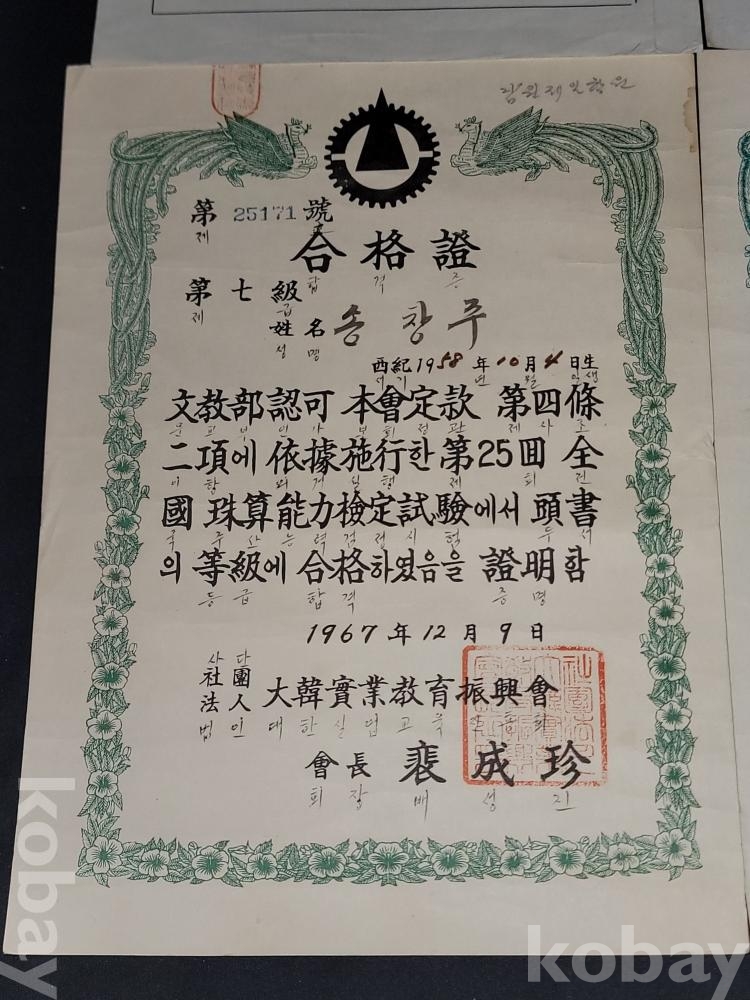 김원제일학원
第 25171 號
제
合格證
합 격 증
第七級
제 급
姓名 송창주
성 명
西紀 1958 年 10 月 4 日生
서 기 년 월 일 생
文敎部認可 本會定款 第四條
문 교 부 인 가 본 회 정 관 제 사 조
二項에 依據施行한 第25回 全
이 항 의 거 시 행 제 회 전
國 珠算能力檢定試驗에서 頭書
국 주 산 능 력 검 정 시 험 두 서
의 等級에 合格하였음을 證明함
등 급 합 격 증 명
1967 年 12 月 9 日
사 단
社團
法人 大韓實業敎育振興會
법 인 대 한 실 업 교 육 진 흥 회
會長 裵成珍
회 장 배 성 진
kobay
kobay